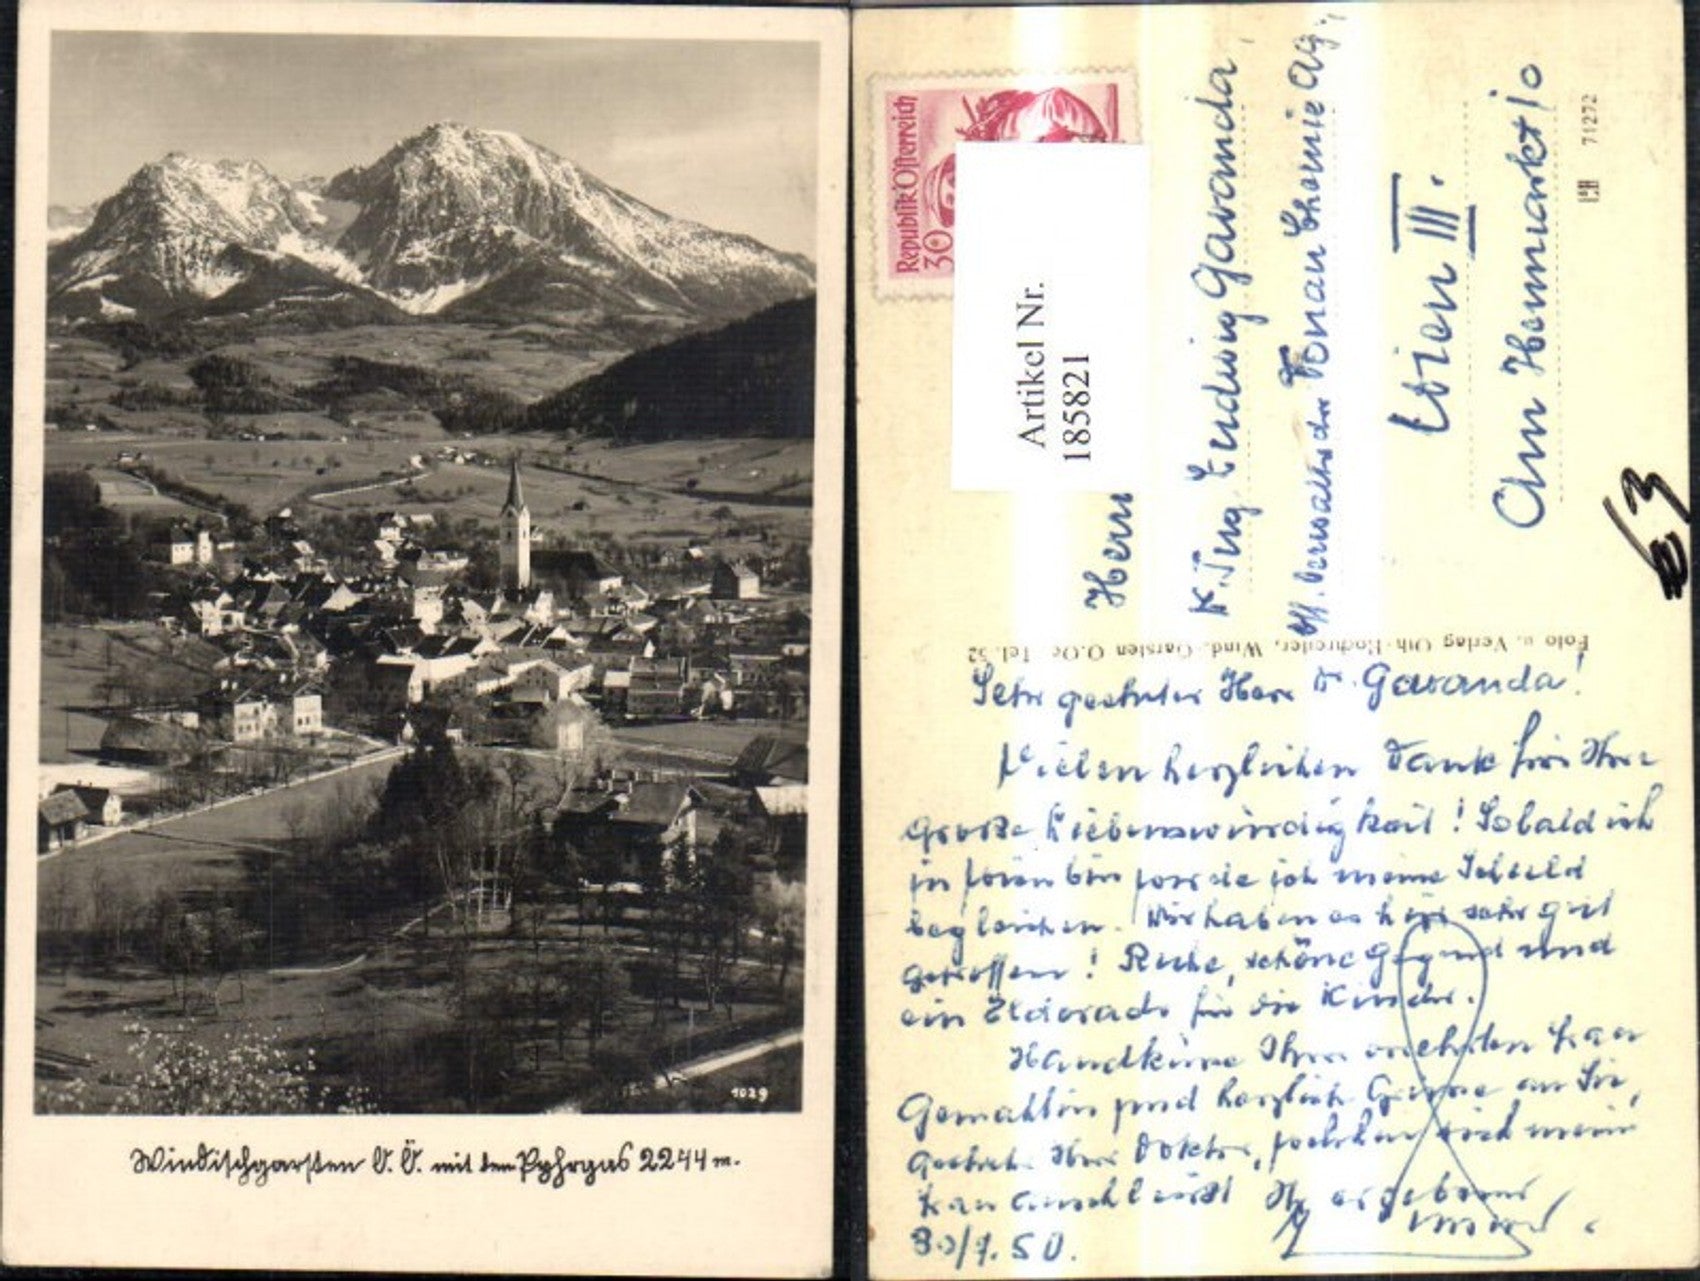 1029
Windischgarsten O.Ö. mit dem Pyhrgas 2244 m.
Republik Österreich
30
Artikel Nr.
185821
Herrn
K. Ing. Ludwig Gavanda
Donau Chemie AG,
Wien III.
Am Heumarkt 10
71272
63
Foto u. Verlag Oth. Hochreiter, Wind. Garsten O.Oe Tel. 52
Sehr geehrter Herr Dr. Gavanda!
Vielen herzlichen Dank für Ihre
große Liebenswürdigkeit! Sobald ich
in Wien bin werde ich meine Schuld
begleichen. Wir haben es hier sehr gut
getroffen! Ruhe, schöne Gegend und
ein Eldorado für die Kinder.
Handküsse Ihrer verehrten Frau
Gemahlin und herzliche Grüsse an Sie,
geehrter Herr Doktor, welchen sich meine
Frau anschliesst Ihr ergebener
30/7.50.